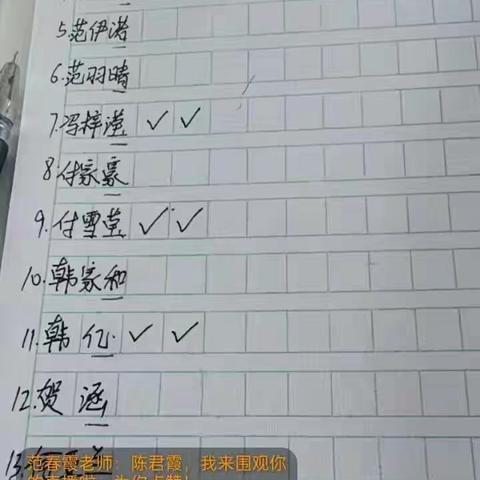 5.范伊诺
6.范羽晴
7.冯梓滢 ✓ ✓
8.付家豪
9.付雪莹 ✓ ✓
10.韩家和
11.韩亿 ✓ ✓
12.贺涵
13.
范春霞老师：陈君霞，我来围观你